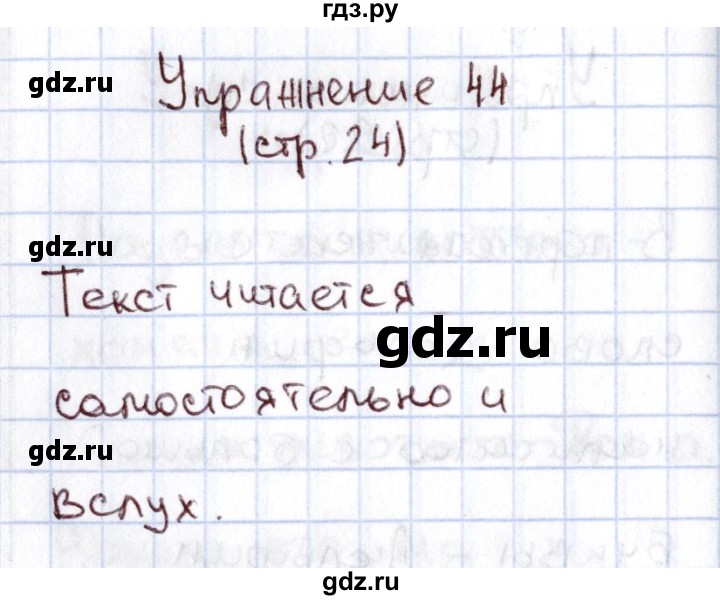 гдз.ру
gdz.ru
Упражнение 44
(стр. 24)
gdz.ru
Текст читается
gdz.ru
самостоятельно и
gdz.ru
вслух.
gdz.ru